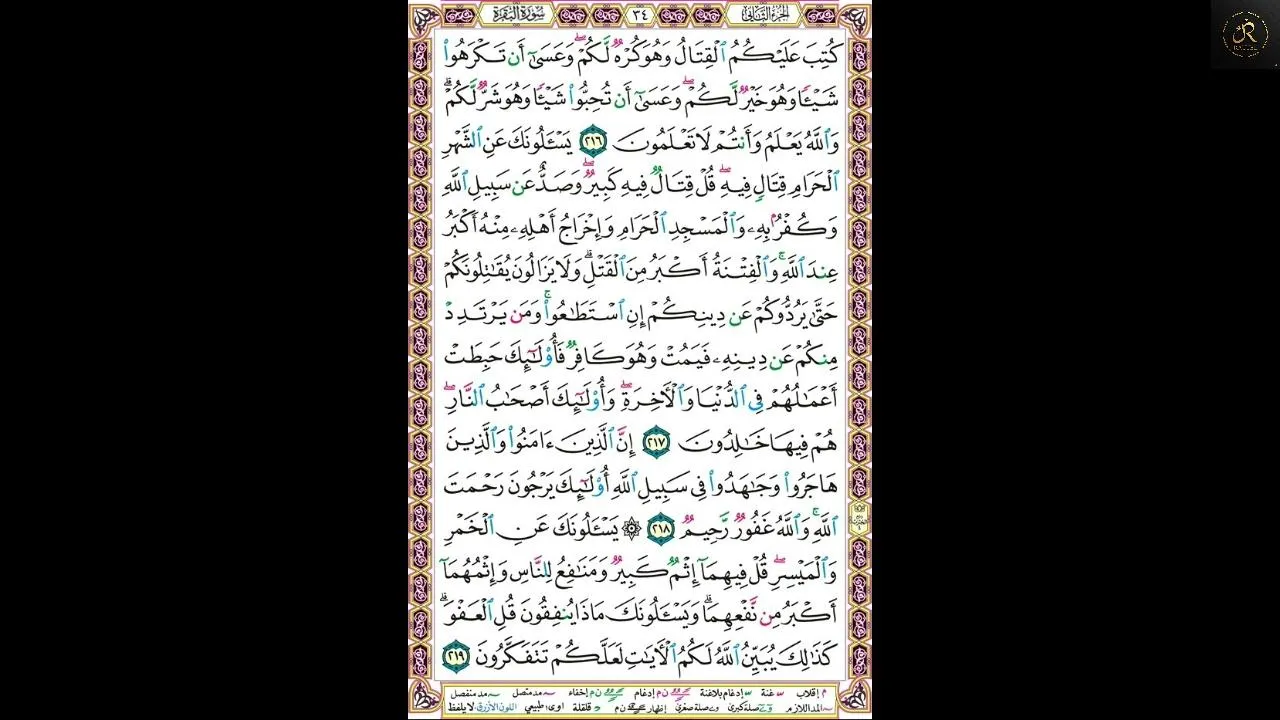 الجزء الثاني
٣٤
سورة البقرة
كُتِبَ عَلَيْكُمُ ٱلْقِتَالُ وَهُوَ كُرْهٌ لَّكُمْ ۖ وَعَسَىٰٓ أَن تَكْرَهُوا۟
شَيْـًٔا وَهُوَ خَيْرٌ لَّكُمْ ۖ وَعَسَىٰٓ أَن تُحِبُّوا۟ شَيْـًٔا وَهُوَ شَرٌّ لَّكُمْ ۗ
وَٱللَّهُ يَعْلَمُ وَأَنتُمْ لَا تَعْلَمُونَ ٢١٦ يَسْـَٔلُونَكَ عَنِ ٱلشَّهْرِ
ٱلْحَرَامِ قِتَالٍ فِيهِ ۖ قُلْ قِتَالٌ فِيهِ كَبِيرٌ ۖ وَصَدٌّ عَن سَبِيلِ ٱللَّهِ
وَكُفْرٌۢ بِهِۦ وَٱلْمَسْجِدِ ٱلْحَرَامِ وَإِخْرَاجُ أَهْلِهِۦ مِنْهُ أَكْبَرُ
عِندَ ٱللَّهِ ۚ وَٱلْفِتْنَةُ أَكْبَرُ مِنَ ٱلْقَتْلِ ۗ وَلَا يَزَالُونَ يُقَـٰتِلُونَكُمْ
حَتَّىٰ يَرُدُّوكُمْ عَن دِينِكُمْ إِنِ ٱسْتَطَـٰعُوا۟ ۚ وَمَن يَرْتَدِدْ
مِنكُمْ عَن دِينِهِۦ فَيَمُتْ وَهُوَ كَافِرٌ فَأُو۟لَـٰٓئِكَ حَبِطَتْ
أَعْمَـٰلُهُمْ فِى ٱلدُّنْيَا وَٱلْـَٔاخِرَةِ ۖ وَأُو۟لَـٰٓئِكَ أَصْحَـٰبُ ٱلنَّارِ ۖ
هُمْ فِيهَا خَـٰلِدُونَ ٢١٧ إِنَّ ٱلَّذِينَ ءَامَنُوا۟ وَٱلَّذِينَ
هَاجَرُوا۟ وَجَـٰهَدُوا۟ فِى سَبِيلِ ٱللَّهِ أُو۟لَـٰٓئِكَ يَرْجُونَ رَحْمَتَ
ٱللَّهِ ۚ وَٱللَّهُ غَفُورٌ رَّحِيمٌ ٢١٨ ۞ يَسْـَٔلُونَكَ عَنِ ٱلْخَمْرِ
وَٱلْمَيْسِرِ ۖ قُلْ فِيهِمَآ إِثْمٌ كَبِيرٌ وَمَنَـٰفِعُ لِلنَّاسِ وَإِثْمُهُمَآ
أَكْبَرُ مِن نَّفْعِهِمَا ۗ وَيَسْـَٔلُونَكَ مَاذَا يُنفِقُونَ قُلِ ٱلْعَفْوَ ۗ
كَذَٰلِكَ يُبَيِّنُ ٱللَّهُ لَكُمُ ٱلْـَٔايَـٰتِ لَعَلَّكُمْ تَتَفَكَّرُونَ ٢١٩
م إقلاب غنة إدغام بلاغنة ن م إدغام ن م إخفاء مد متصل مد منفصل
المد اللازم صلة كبرى صلة صغرى إظهار ن م قلقلة اوى: طبيعي اللون الأزرق: لا يلفظ